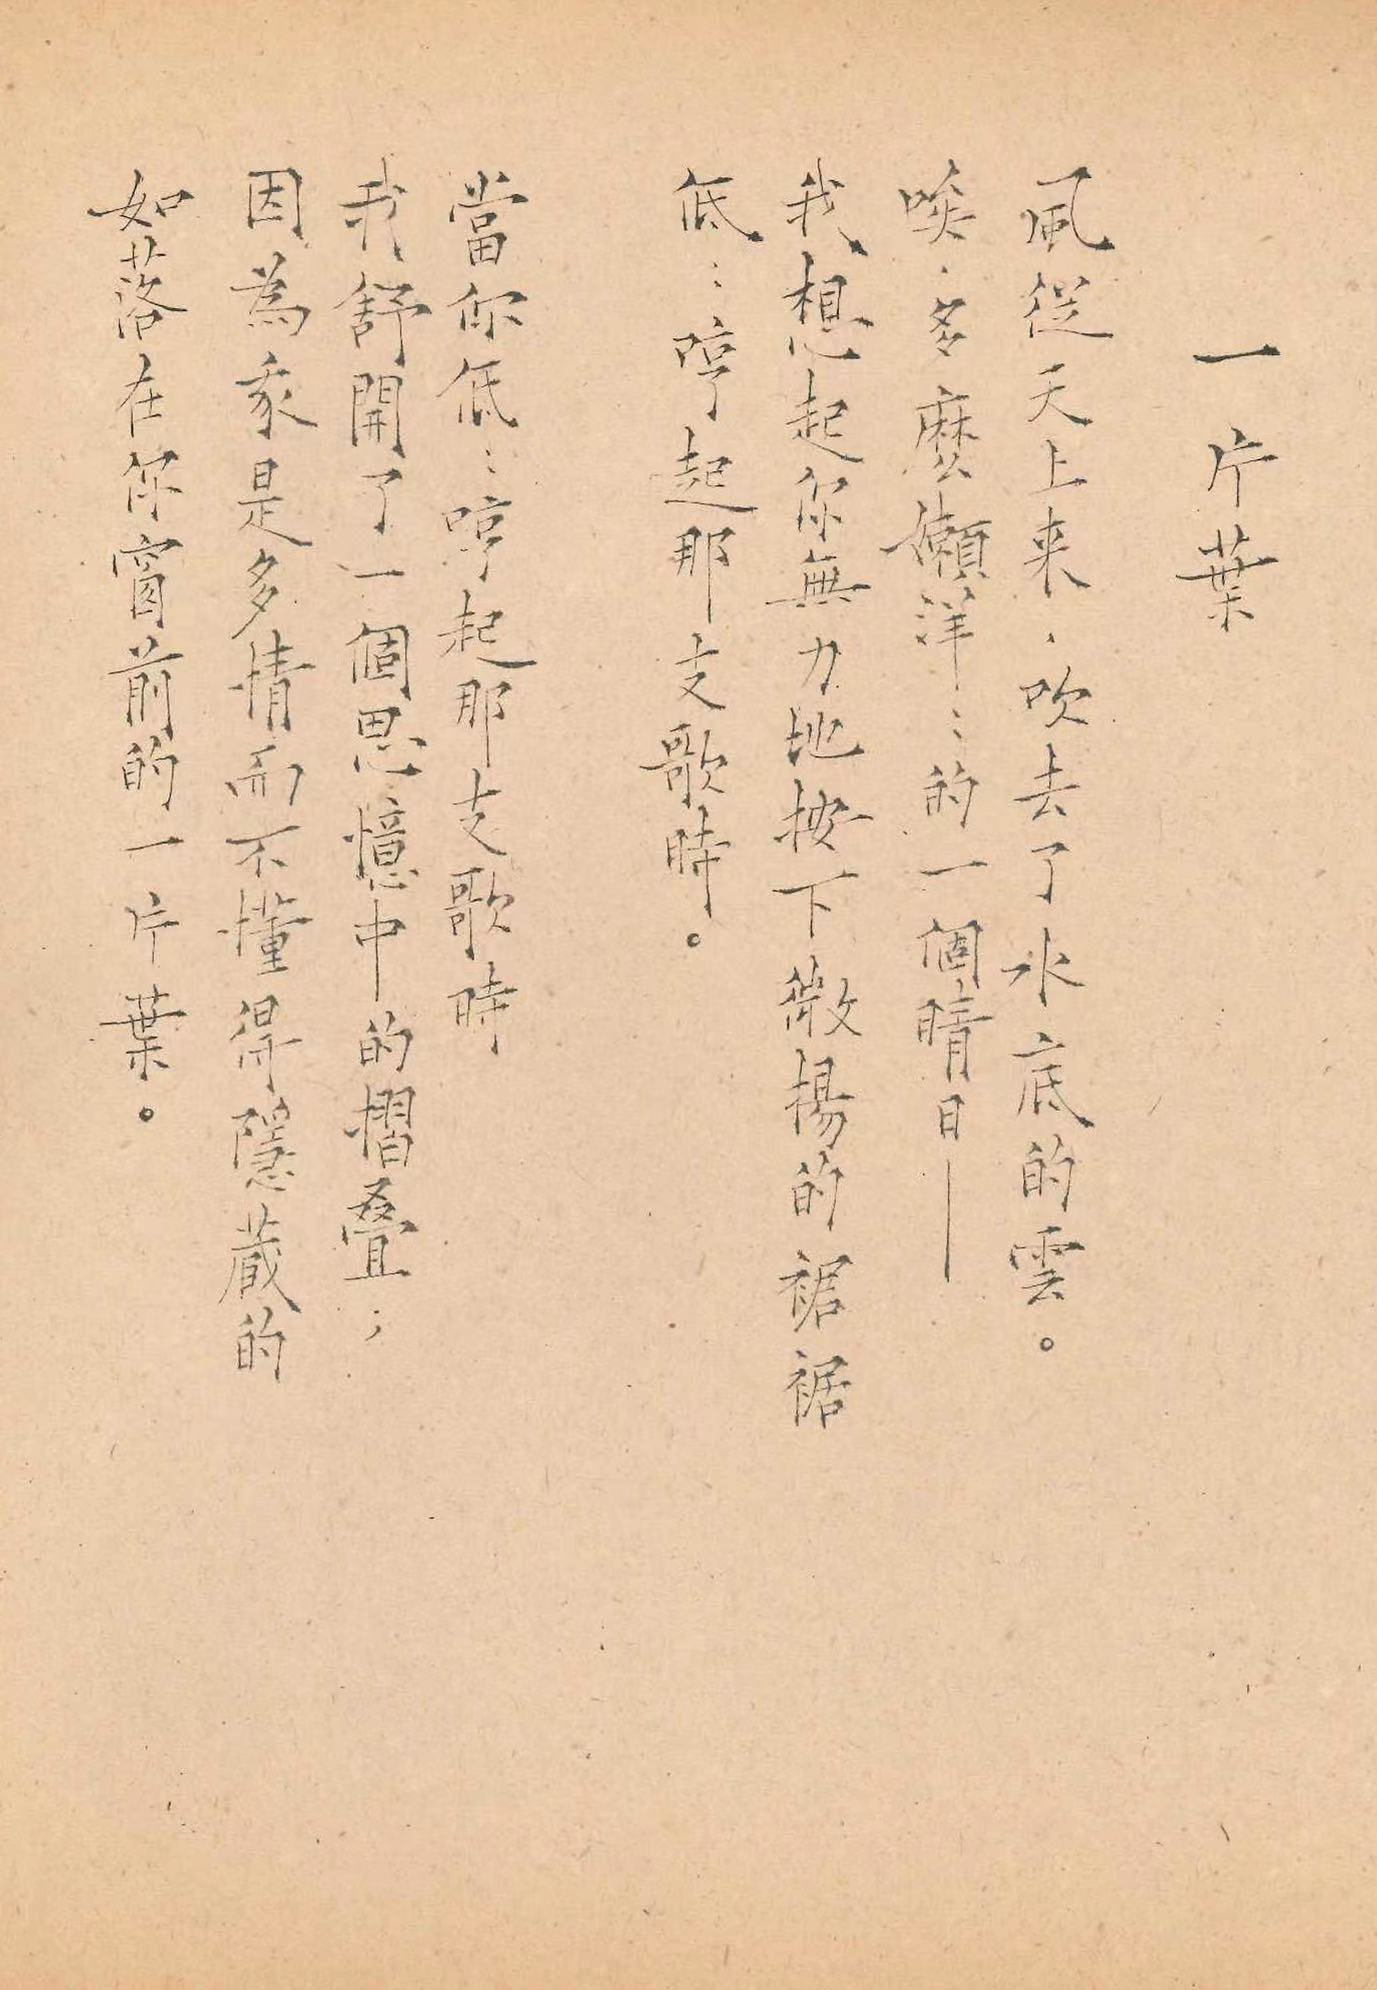 一片葉
風從天上来，吹去了水底的雲。
唉，多麼懶洋〻的一個晴日——
我想起你無力地按下微揚的裾裾
低〻哼起那支歌時。
當你低〻哼起那支歌時
我舒開了一個思憶中的摺叠；
因為我是多情而不懂得隱藏的
如落在你窗前的一片葉。